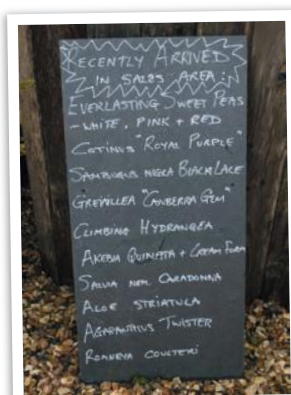 RECENTLY ARRIVED
IN SALES AREA:
EVERLASTING SWEET PEAS
- WHITE, PINK + RED
COTINUS "ROYAL PURPLE"
SAMBUCUS NIGRA BLACK LACE
GREVILLEA "CANBERRA GEM"
CLIMBING HYDRANGEA
AKEBIA QUINATA + CREAM FORM
SALVIA NEM. CARADONNA
ALOE STRIATULA
AGAPANTHUS TWISTER
ROMNEYA COULTERI